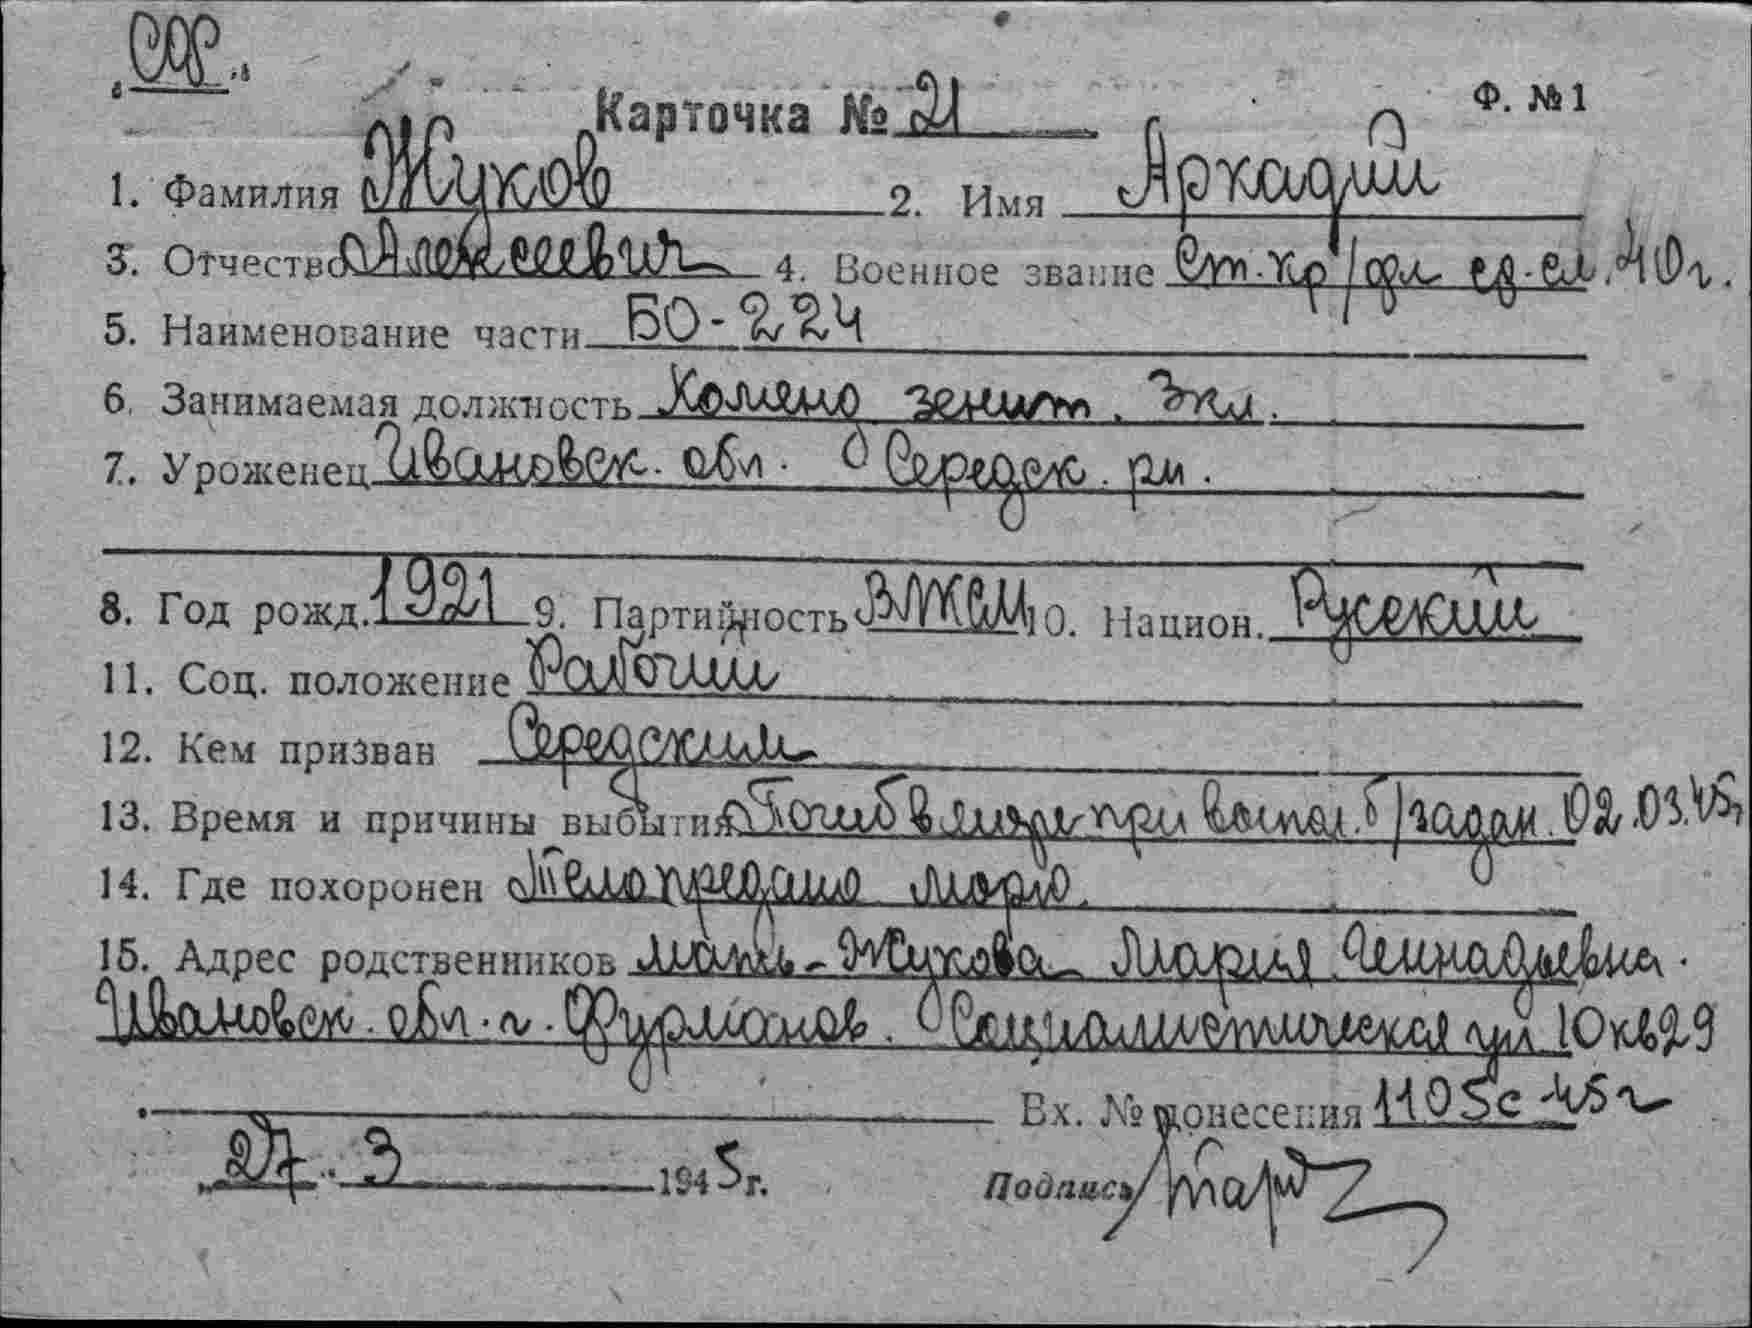 Ф. №1
Карточка № 21
1. Фамилия Жуков 2. Имя Аркадий
3. Отчество Алексеевич 4. Военное звание Ст. кр/фл сл. 40г.
5. Наименование части БО-224
6. Занимаемая должность Команд зенит.
7. Уроженец Ивановск. обл. Середск. рн.
8. Год рожд. 1921 9. Партийность ВЛКСМ 10. Национ. Русский
11. Соц. положение Рабочий
12. Кем призван Середским
13. Время и причины выбытия Погиб в море при выпол. б/задан. 02.03.45г
14. Где похоронен Тело предано морю.
15. Адрес родственников Мать - Жукова Мария Геннадьевна.
Ивановск. обл. г. Фурманов. Социалистическая ул 10 кв 29
Вх. № донесения 1105с 45г
27. 3 1945г. Подпись